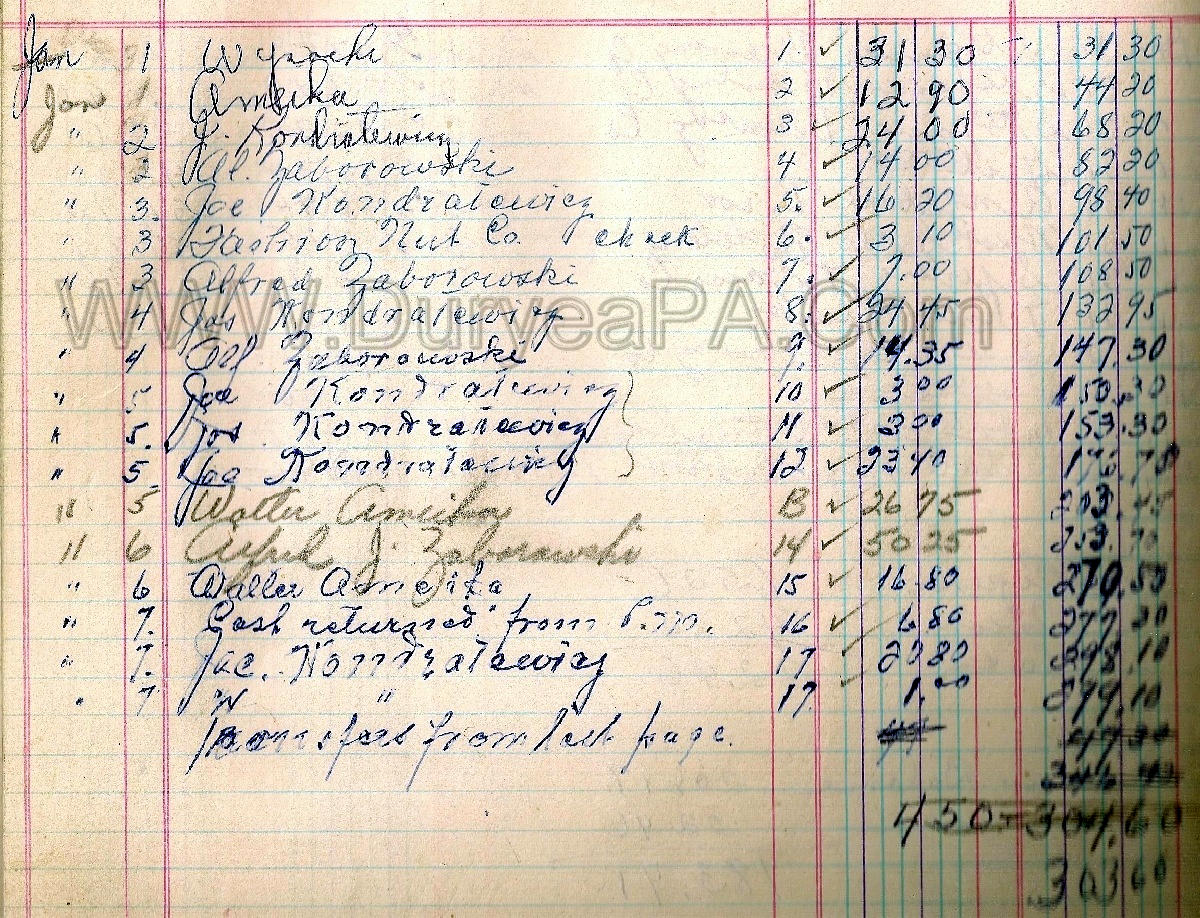 Jan 1 W 1. ✓ 31 30 31 30
Jan 1. Ameika 2 ✓ 12 90 44 20
" 2 J. Kondratewicz 3 ✓ 24 00 68 20
" 2 Al. Zaborowski 4. ✓ 14 00 82 20
" 3. Joe Kondratewicz 5. ✓ 16 20 98 40
" 3 Fashion Nut Co check 6. ✓ 3 10 101 50
" 3 Alfred Zaborowski 7. ✓ 7.00 108 50
WWW.DuryeaPA.Com
" 4 Jos Kondratewicz 8. ✓ 24 45 132 95
" 4 Alf Zaborowski 9. ✓ 14.35 147.30
" 5 Joe Kondratewicz 10 ✓ 3 00 150.30
" 5. Jos. Kondratewicz 11 ✓ 3 00 153.30
" 5. Joe Kondratewicz 12 ✓ 23 40 176.70
" 5 Walter Ameika 13 ✓ 26 75 203.45
" 6 Alfred J. Zaborowski 14 ✓ 50 25 253.70
" 6 Walter Ameika 15 ✓ 16.80 270.50
" 7. Cash returned from P.M. 16 ✓ 6 80 277 30
" 7. Joe. Kondratewicz 17 ✓ 20 80 298.10
" 7 " " 17. ✓ 1.00 299.10
from last page. 47 30
346
450 304.60
303 60